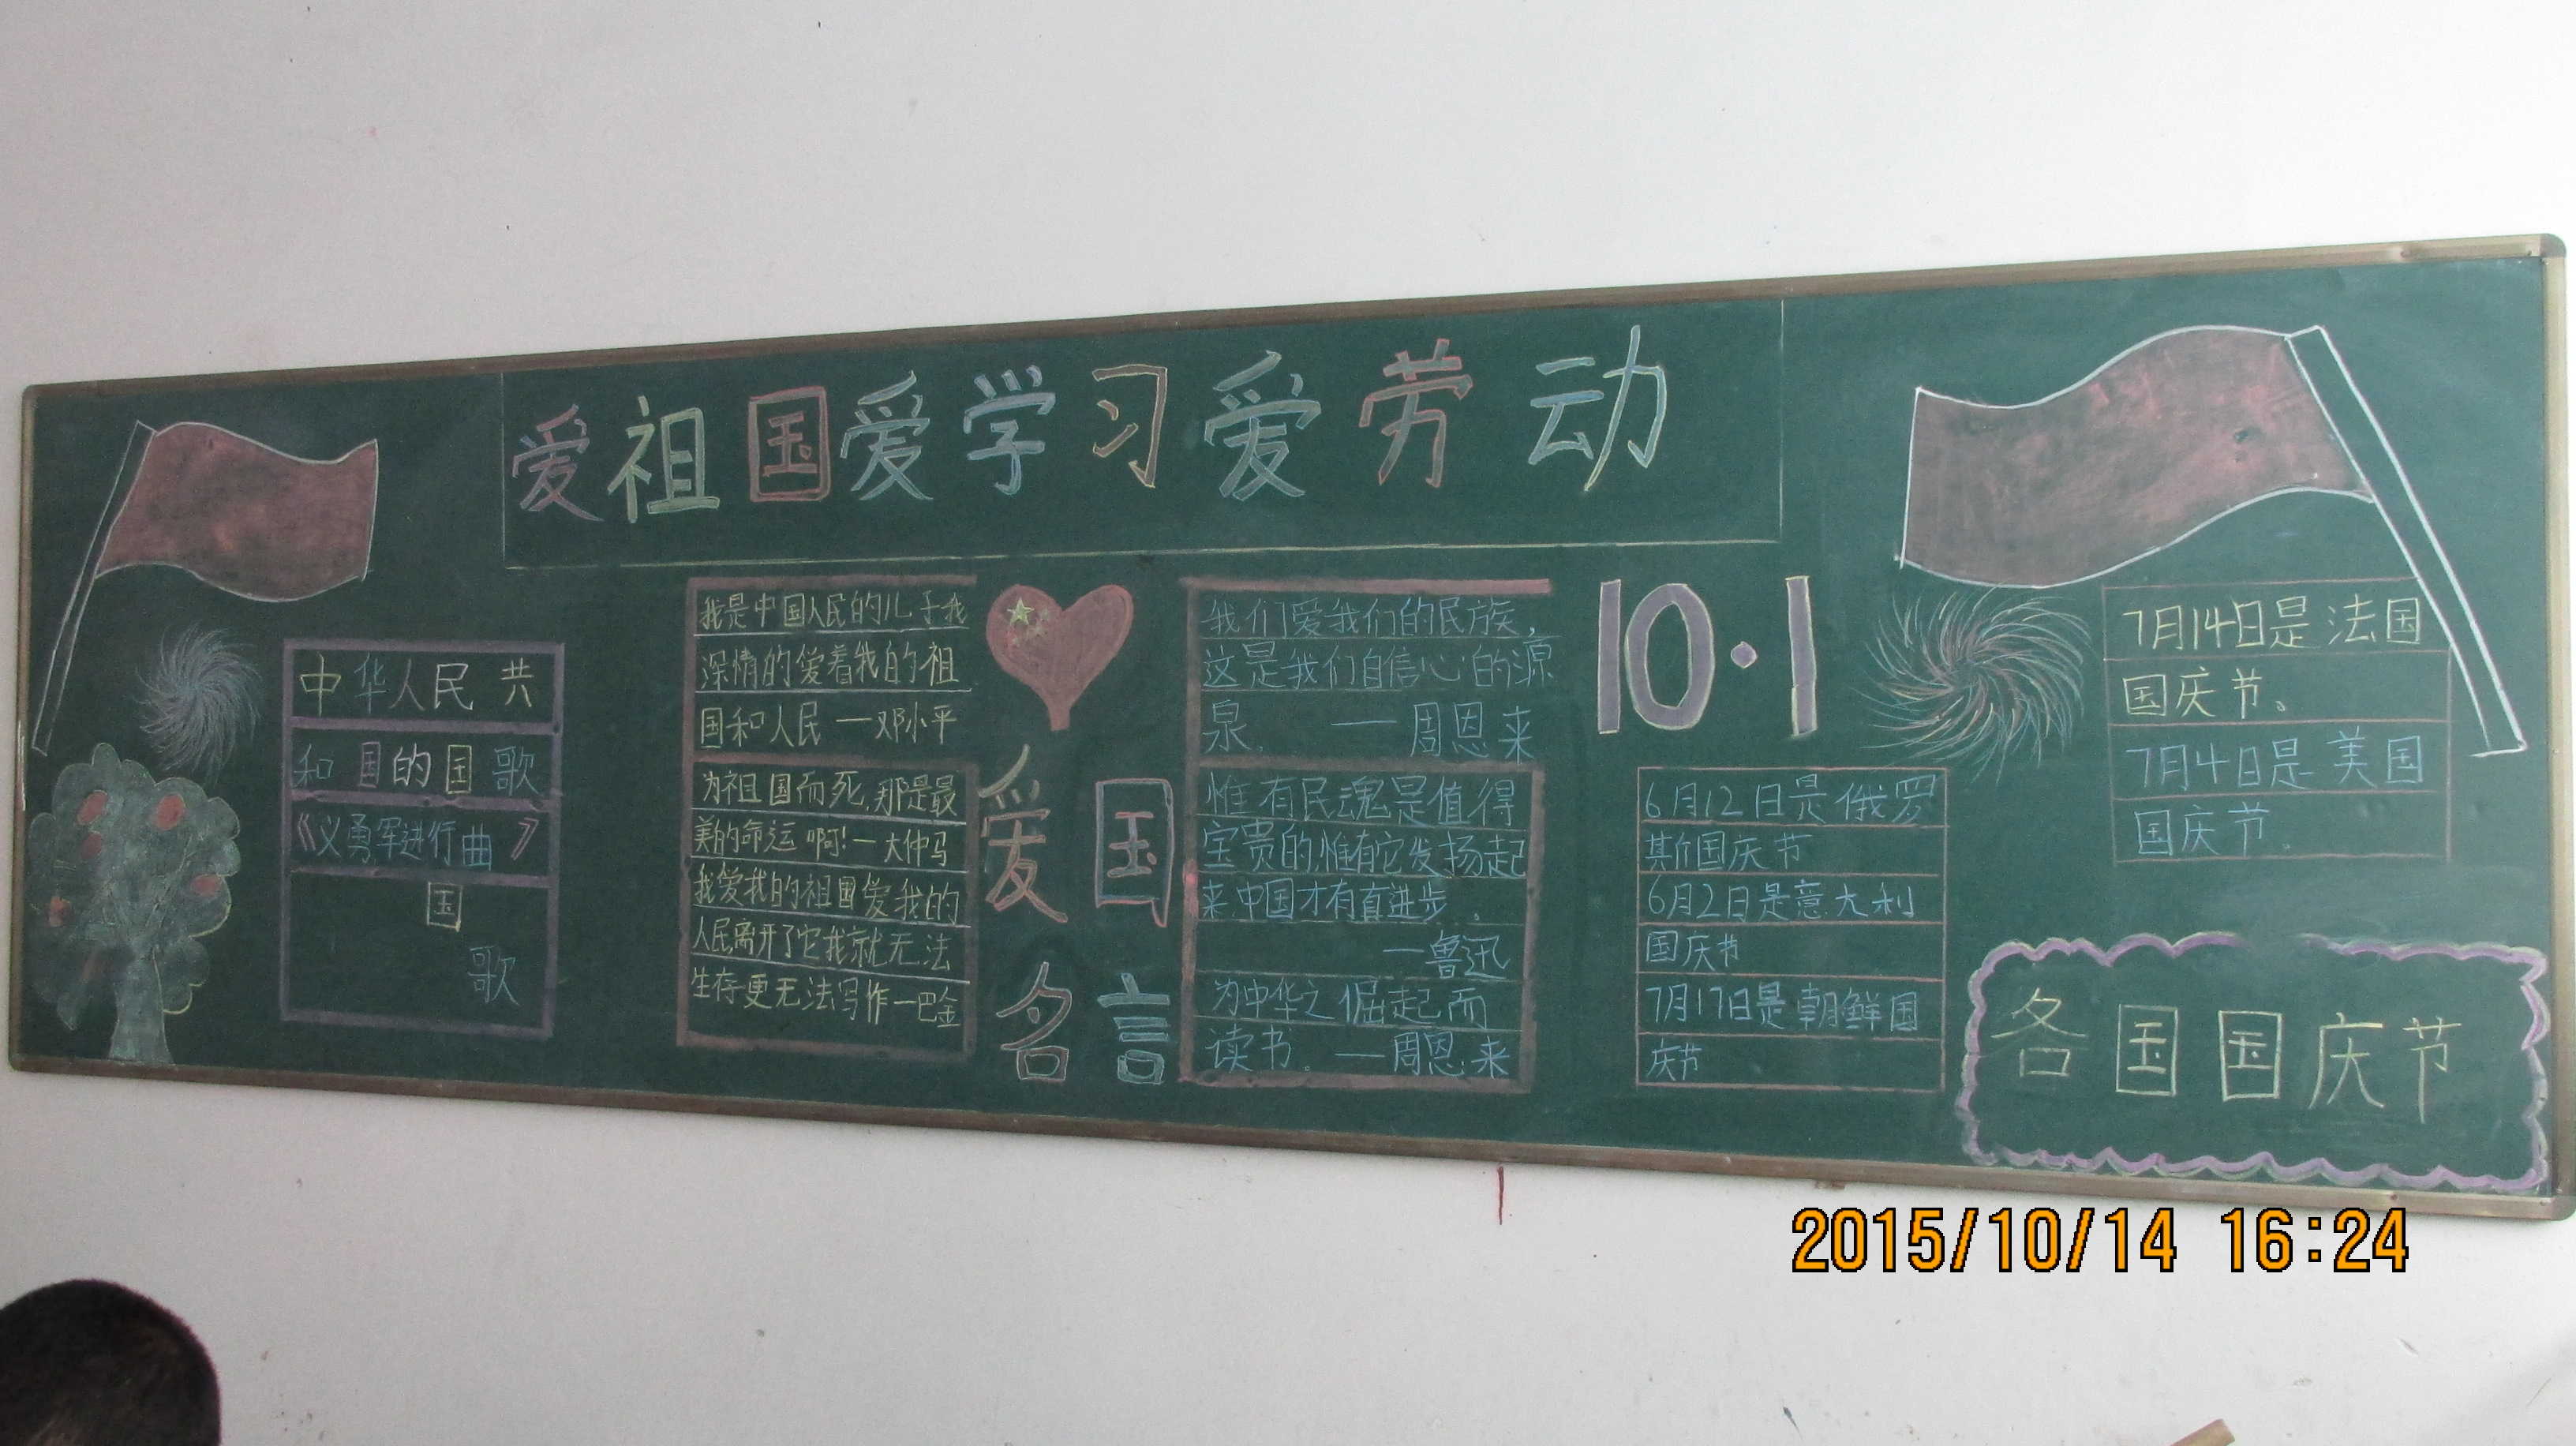 爱祖国爱学习爱劳动
中华人民共
和国的国歌
《义勇军进行曲》
国
歌
我是中国人民的儿子我
深情的爱着我的祖
国和人民—邓小平
为祖国而死,那是最
美的命运啊!—大仲马
我爱我的祖国爱我的
人民离开了它我就无法
生存更无法写作—巴金
爱国
名言
我们爱我们的民族,
这是我们自信心的源
泉. ——周恩来
惟有民魂是值得
宝贵的,惟有它发扬起
来中国才有真进步.
—鲁迅
为中华之倔起而
读书。——周恩来
10·1
6月12日是俄罗
斯国庆节
6月2日是意大利
国庆节
7月17日是朝鲜国
庆节
7月14日是法国
国庆节。
7月4日是美国
国庆节.
各国国庆节
2015/10/14 16:24